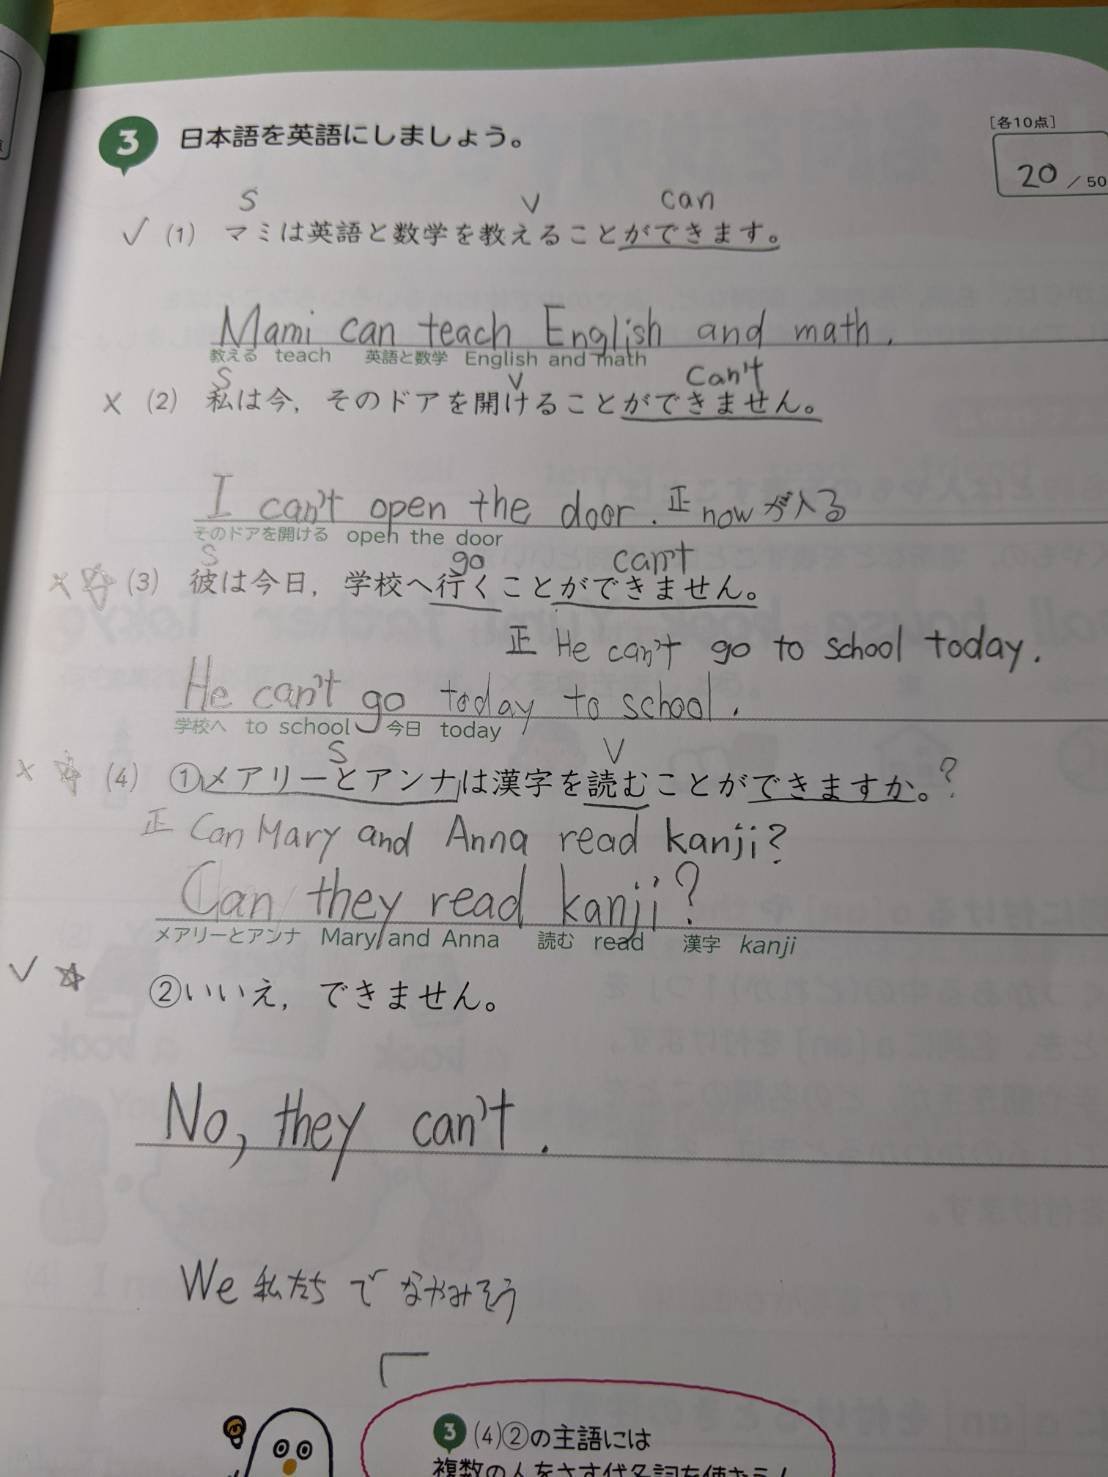 3 日本語を英語にしましょう。
[各10点]
20 / 50
S V can
✓ (1) マミは英語と数学を教えることができます。
Mami can teach English and math.
教える teach 英語と数学 English and math
S V can't
× (2) 私は今，そのドアを開けることができません。
I can't open the door. 正 now が入る
そのドアを開ける open the door
S go can't
× ☆ (3) 彼は今日，学校へ行くことができません。
正 He can't go to school today.
He can't go today to school.
学校へ to school 今日 today
S V
× ☆ (4) ①メアリーとアンナは漢字を読むことができますか。?
正 Can Mary and Anna read kanji?
Can they read kanji?
メアリーとアンナ Mary and Anna 読む read 漢字 kanji
✓ ☆ ②いいえ，できません。
No, they can't.
We 私たち で なやみそう
3 (4)②の主語には
複数の人をさす代名詞を使おう！